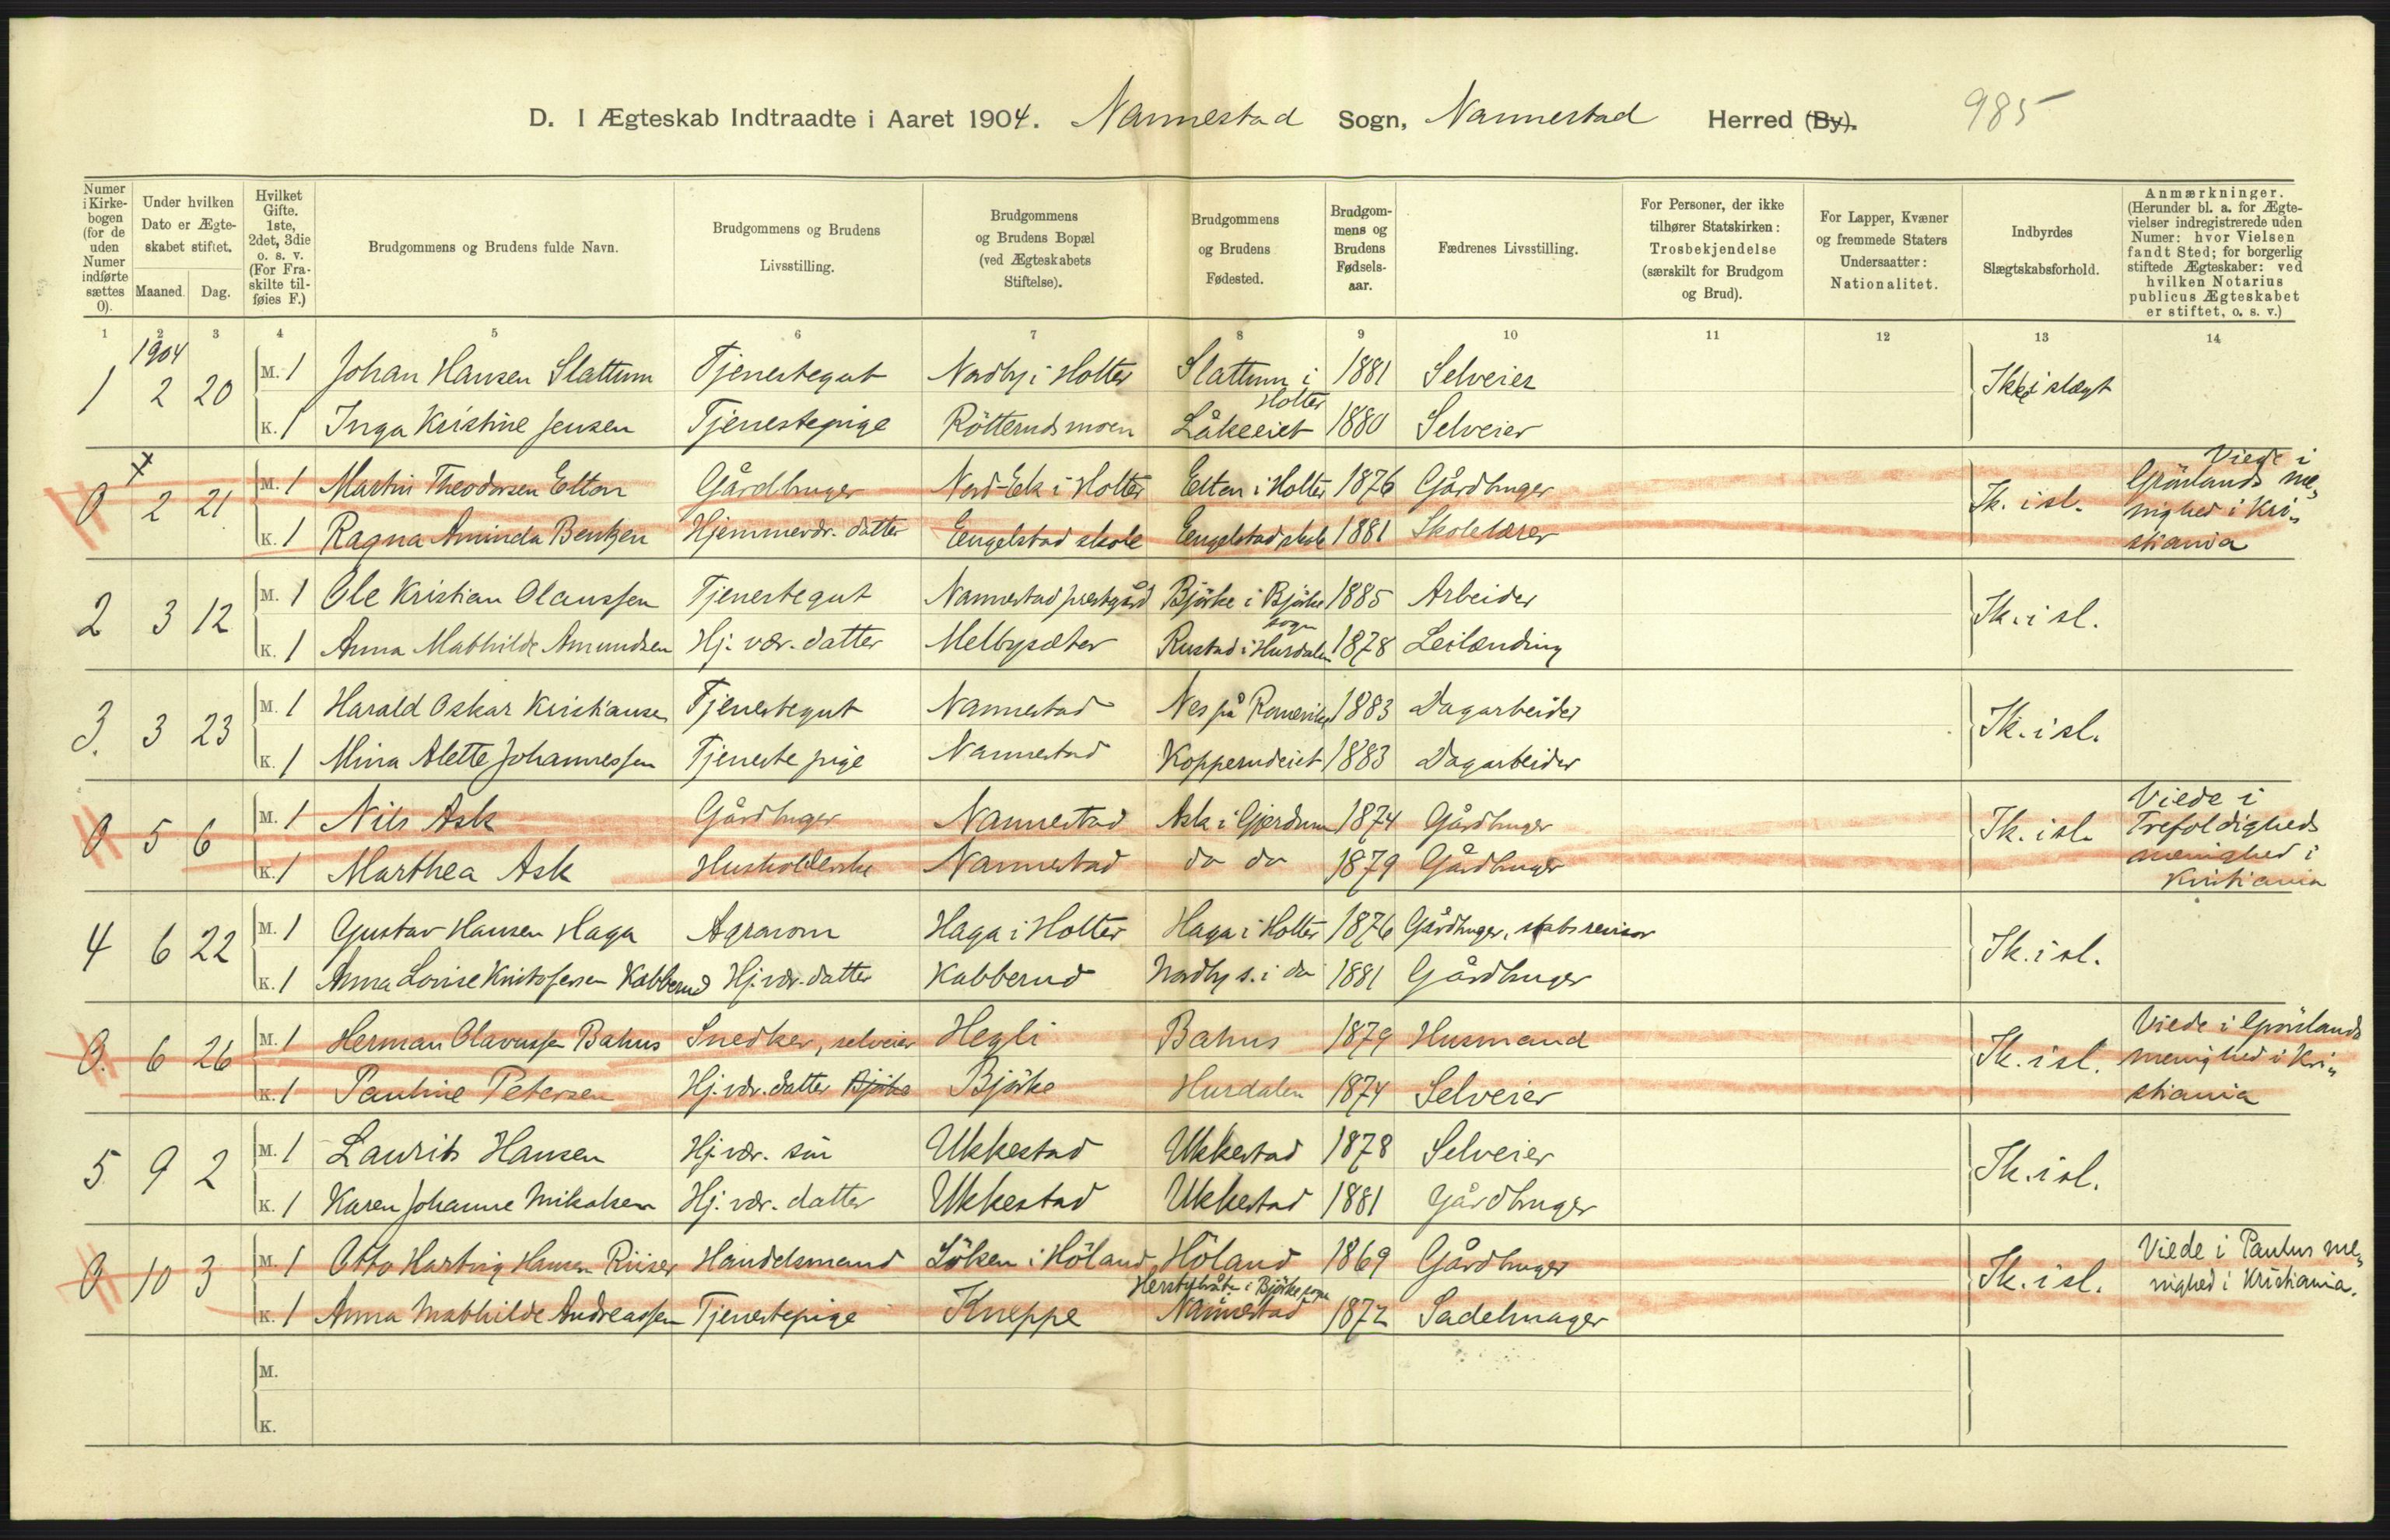 D. I Ægteskab Indtraadte i Aaret 1904. Nannestad Sogn, Nannestad Herred (By). 985
Numer i Kirkebogen (for de uden Numer indførte sættes 0).
Under hvilken Dato er Ægteskabet stiftet.
Maaned. Dag.
Hvilket Gifte. 1ste, 2det, 3die o. s. v. (For Fraskilte tilføies F.)
Brudgommens og Brudens fulde Navn.
Brudgommens og Brudens Livsstilling.
Brudgommens og Brudens Bopæl (ved Ægteskabets Stiftelse).
Brudgommens og Brudens Fødested.
Brudgommens og Brudens Fødselsaar.
Fædrenes Livsstilling.
For Personer, der ikke tilhører Statskirken: Trosbekjendelse (særskilt for Brudgom og Brud).
For Lapper, Kvæner og fremmede Staters Undersaatter: Nationalitet.
Indbyrdes Slægtskabsforhold.
Anmærkninger. (Herunder bl. a. for Ægtevielser indregistrerede uden Numer: hvor Vielsen fandt Sted; for borgerlig stiftede Ægteskaber: ved hvilken Notarius publicus Ægteskabet er stiftet, o. s. v.)
1 2 3 4 5 6 7 8 9 10 11 12 13 14
1904
1 2 20 M. 1 Johan Hansen Slattum Tjenestegut Nordby i Holter Slattum i Holter 1881 Selveier Ikke i slægt
K. 1 Inga Kristine Jensen Tjenestepige Rötterudsmoen Låkeeiet 1880 Selveier
0 2 21 M. 1 Martin Theodorsen Elton Gårdbruger Nord-Ek i Holter Elton i Holter 1876 Gårdbruger Ik. i sl. Viede i Grönlands menighed i Kristiania
K. 1 Ragna Aminda Bentzen Hjemmevær. datter Eengelstad skole Eengelstad skole 1881 Skolelærer
2 3 12 M. 1 Ole Kristian Olaussen Tjenestegut Nannestad prestgård Björke i Björke sogn 1885 Arbeider Ik. i sl.
K. 1 Anna Mathilde Amundsen Hj. vær. datter Melbysæter Rustad i Hurdalen 1878 Leilænding
3. 3 23 M. 1 Harald Oskar Kristiansen Tjenestegut Nannestad Nes på Romerike 1883 Dagarbeider Ik. i sl.
K. 1 Mina Alette Johannessen Tjenestepige Nannestad Kopperudeiet 1883 Dagarbeider
0 5 6 M. 1 Nils Ask Gårdbruger Nannestad Ask i Gjerdrum 1874 Gårdbruger Ik. i sl. Viede i Trefoldigheds menighed i Kristiania
K. 1 Marthea Ask Husholderske Nannestad do do 1879 Gårdbruger
4 6 22 M. 1 Gustav Hansen Haga Agronom Haga i Holter Haga i Holter 1876 Gårdbruger, statsrevisor Ik. i sl.
K. 1 Anna Lovise Kristofersen Kabberud Hj. vær. datter Kabberud Nordby s. i do 1881 Gårdbruger
0. 6 26 M. 1 Herman Olavussen Bahus Snedker, selveier Hegli Bahus 1879 Husmand Ik. i sl. Viede i Grönlands menighed i Kristiania
K. 1 Pauline Petersen Hj. vær. datter Björke Björke Hurdalen 1874 Selveier
5 9 2 M. 1 Laurits Hansen Hj. vær. sön Ukkestad Ukkestad 1878 Selveier Ik. i sl.
K. 1 Karen Johanne Mikalsen Hj. vær. datter Ukkestad Ukkestad 1881 Gårdbruger
0 10 3 M. 1 Otto Hartvig Hansen Riiser Handelsmand Löken i Höland Höland 1869 Gårdbruger Ik. i sl. Viede i Paulus menighed i Kristiania.
K. 1 Anna Mathilde Andreassen Tjenestepige Kneppe i Björke sogn i Nannestad 1872 Sadelmager
M.
K.